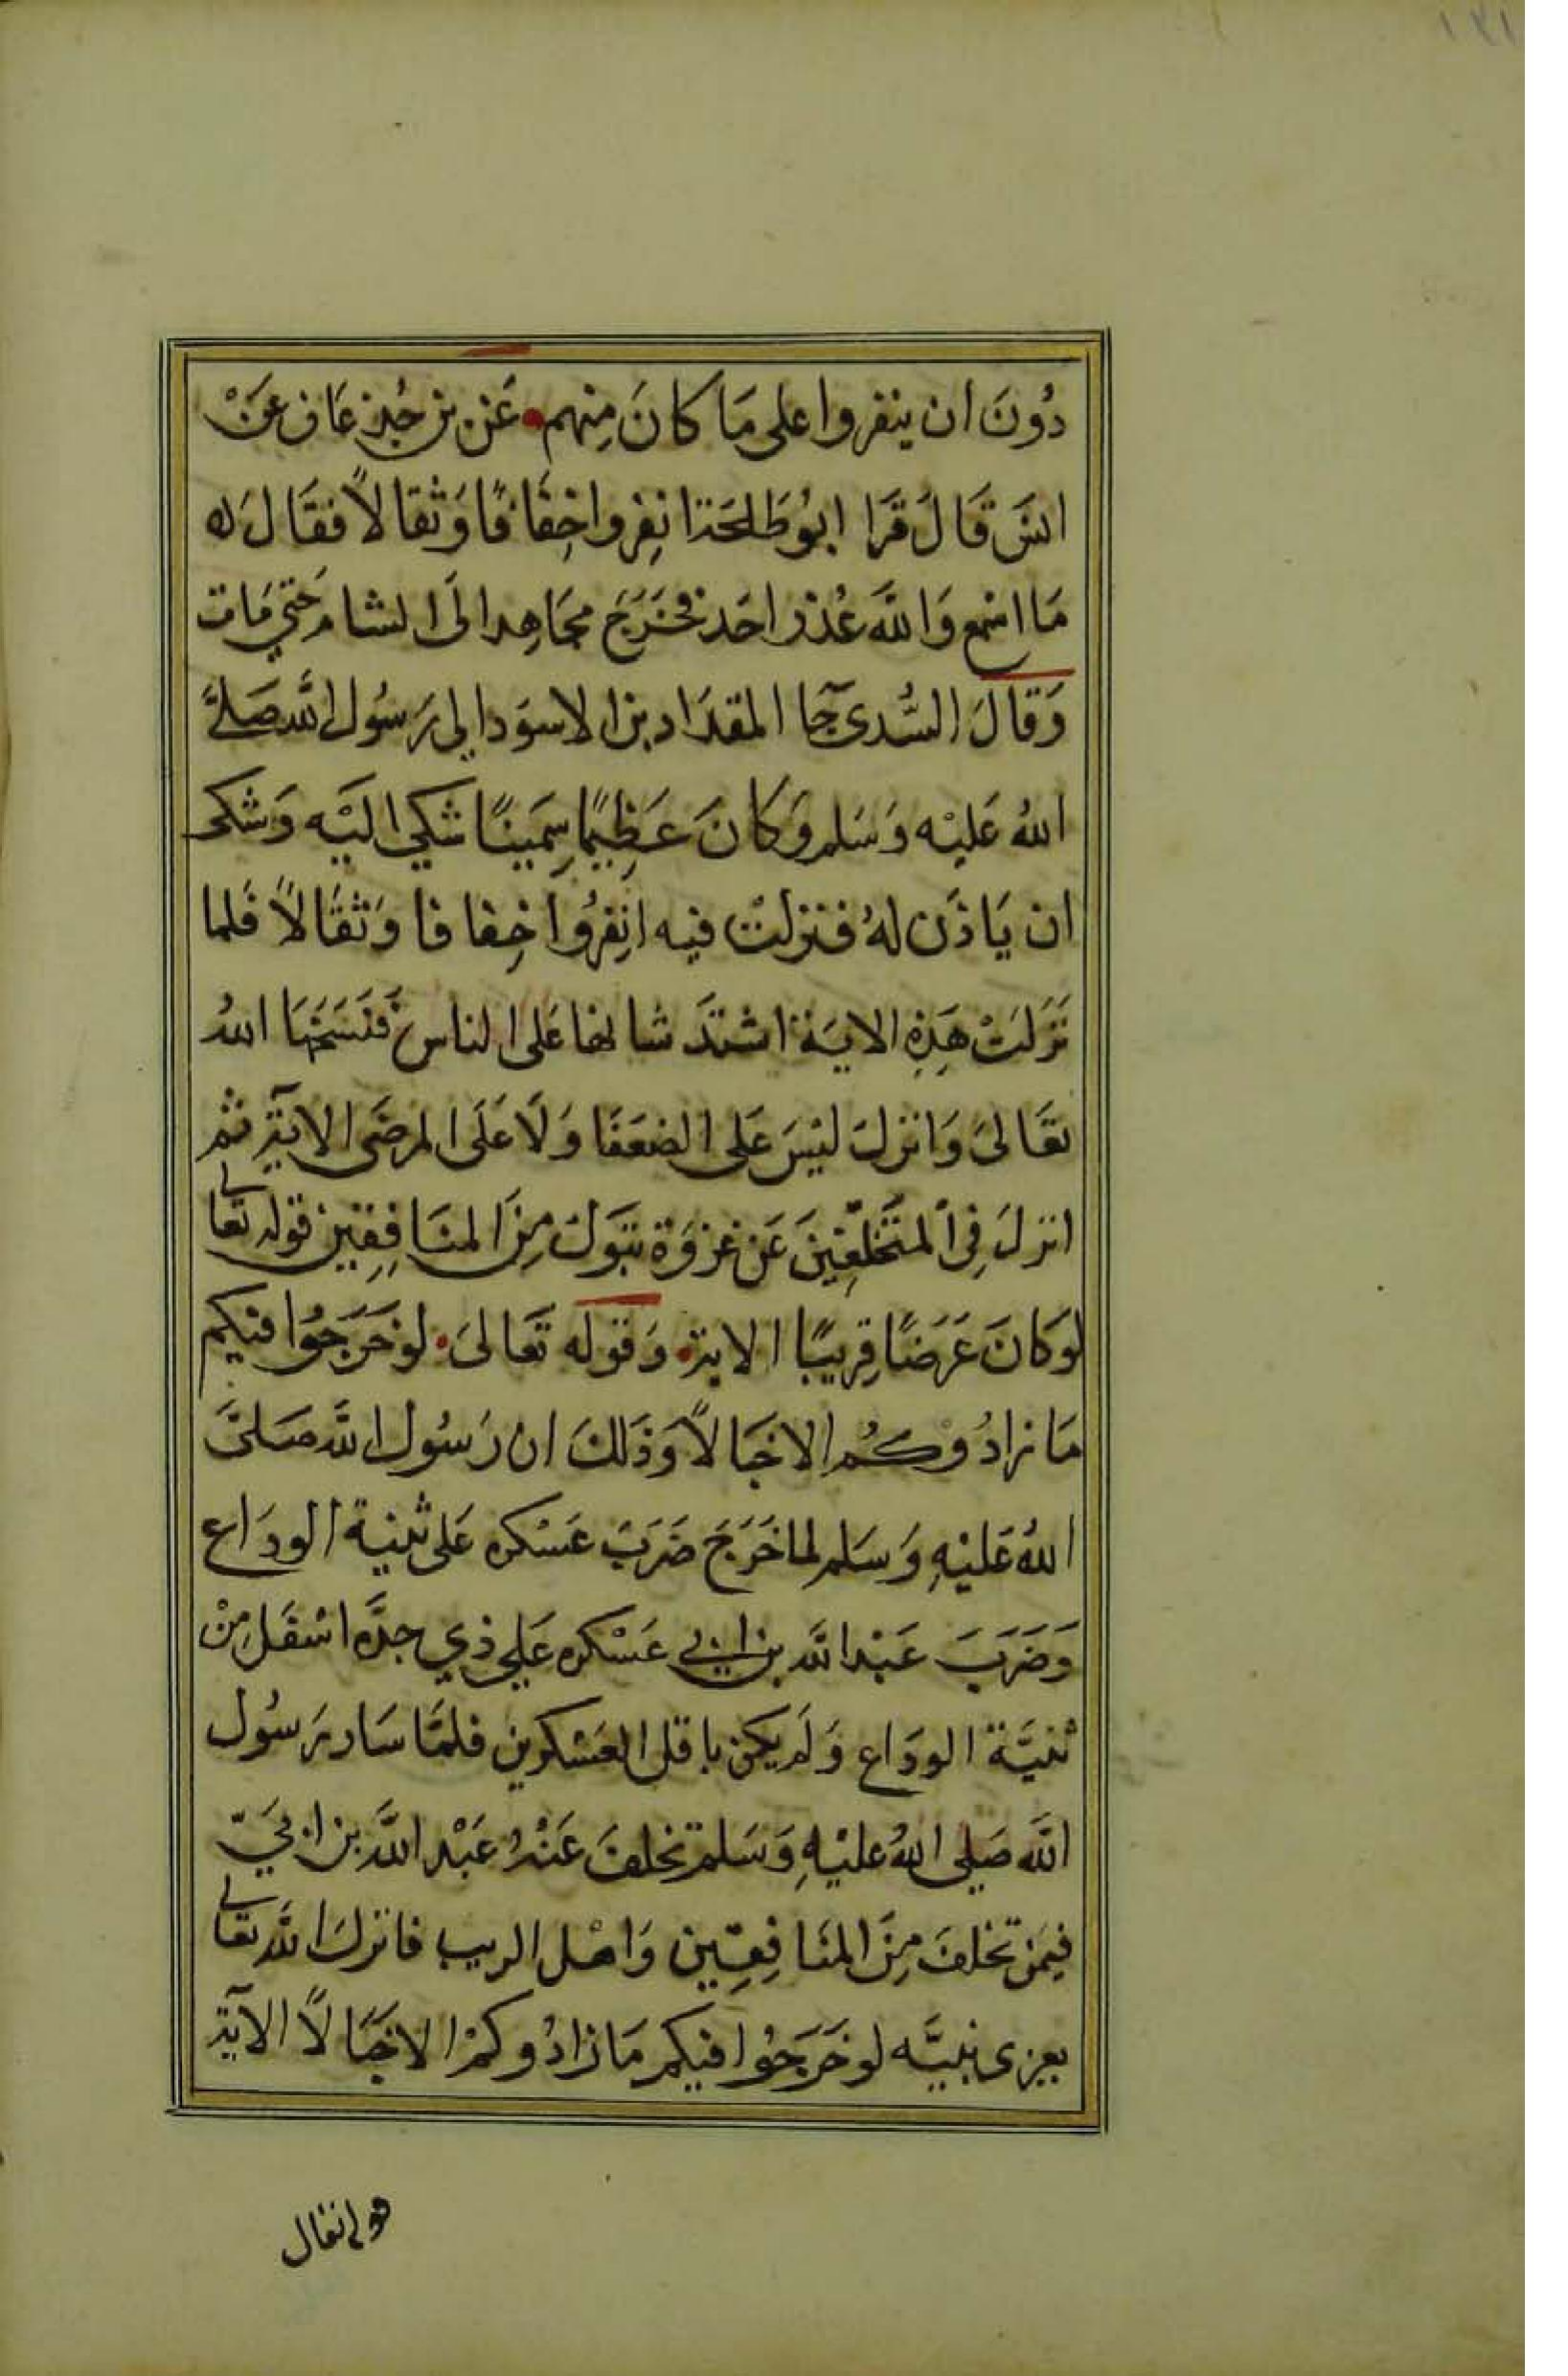 ١٢١
دُونَ ان ينفروا على مَا كانَ مِنهم • عَن بن جُدعَان عَنْ
انسَ قَالَ قَرَا ابُو طَلحَة انفِروا خِفَافًا وَثقالاً فقَالَ له
مَا اسْمع وَاللَّه عُذر احَد فخَرَجَ مجَاهِدا الَى الشام حَتي مَات
وَقَالَ السُّدى جَآ المقدَاد بن الاسوَد الى رَسُول اللَّه صَلىَّ
اللهُ عَليْه وَسَلم وَكانَ عَظِيمًا سَمِينًا شكى اليَه وَشكى
ان يَاذَن لهُ فنزلتْ فيه انفِرُوا خِفافا وَثقَالاً فلما
نَزَلَتْ هَذِهِ الايَة اشتدَّ شانها عَلى الناس فَنَسَخَهَا اللهُ
تعَالىَ وَانزلَ ليْسَ عَلى الضعَفَا وَلَا عَلَى المرضَى الايَة ثم
انزلَ فِى المتَخَلّفِينَ عَن غزوَة تبَوك مِنَ المنَافِقِين قوله تعالى
لو كَانَ عَرَضًا قرِيبًا الاية • وَقوله تعَالىَ • لو خَرَجُوا فيكم
مَا زادُوْكُم الا خبَالاً وَذَلكَ ان رَسُول اللَّه صَلىَّ
اللهُ عَليْهِ وَسَلم لما خَرَجَ ضَرَبَ عَسْكره عَلى ثنية الودَاع
وَضَرَبَ عَبْد اللَّه بن ابي عَسْكره عَلي ذي جدَّه اسْفَل مِنْ
ثنيَّة الودَاع وَلَم يكن باقل العَسْكرين فلمَّا سَار رَسُول
اللَّه صَلى اللهُ عَليْهِ وَسَلم تخلفَ عَنْهُ عَبْد اللَّه بن ابَيّ
فيمَن تخلفَ مِنَ المنَافِقِين وَاهْل الريب فانزلَ اللَّه تعالى
يعزى نبيَّه لو خَرَجُوا فيكم مَا زادُوكمْ الا خبَالاً الآية